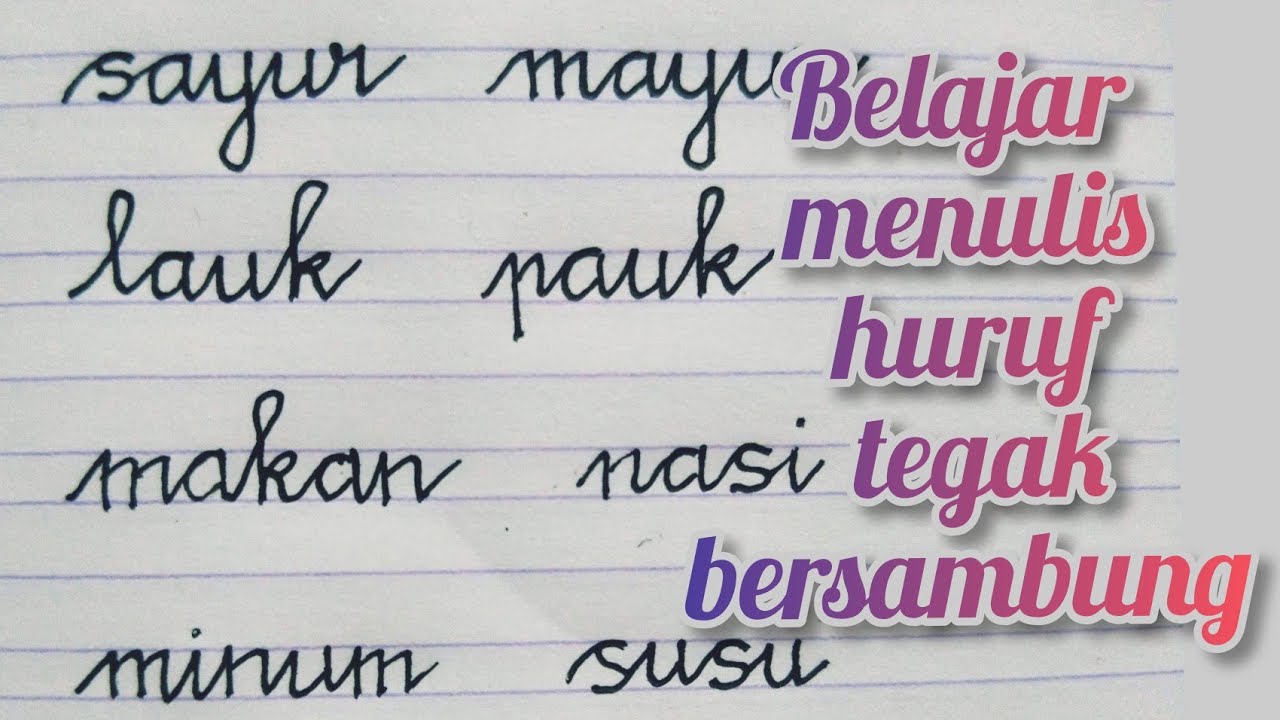 sayur mayur
lauk pauk
makan nasi
minum susu
Belajar
menulis
huruf
tegak
bersambung